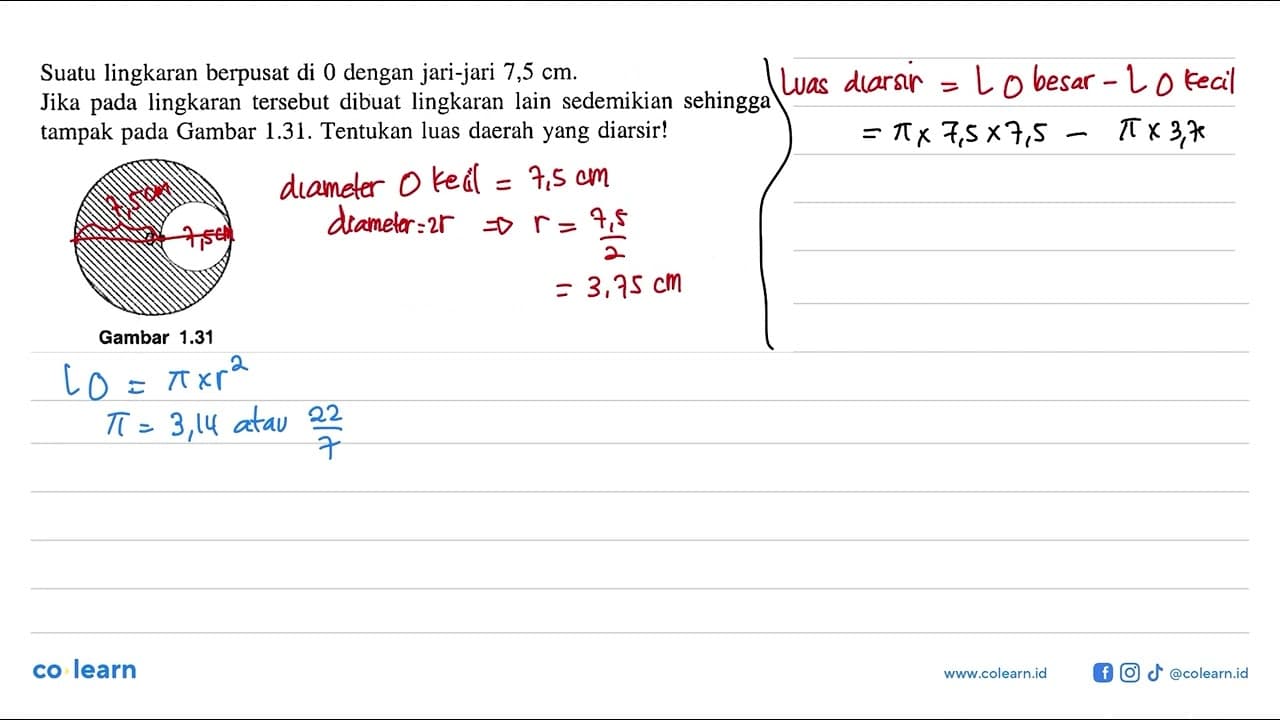 Suatu lingkaran berpusat di 0 dengan jari-jari 7,5 cm.
Jika pada lingkaran tersebut dibuat lingkaran lain sedemikian sehingga
tampak pada Gambar 1.31. Tentukan luas daerah yang diarsir!
7,5 cm
7,5 cm
Gambar 1.31
diameter O kecil = 7,5 cm
diameter = 2r ⇒ r = 7,5/2
= 3,75 cm
L O = π x r²
π = 3,14 atau 22/7
Luas diarsir = L O besar - L O kecil
= π x 7,5 x 7,5 - π x 3,7
co learn
www.colearn.id
@colearn.id